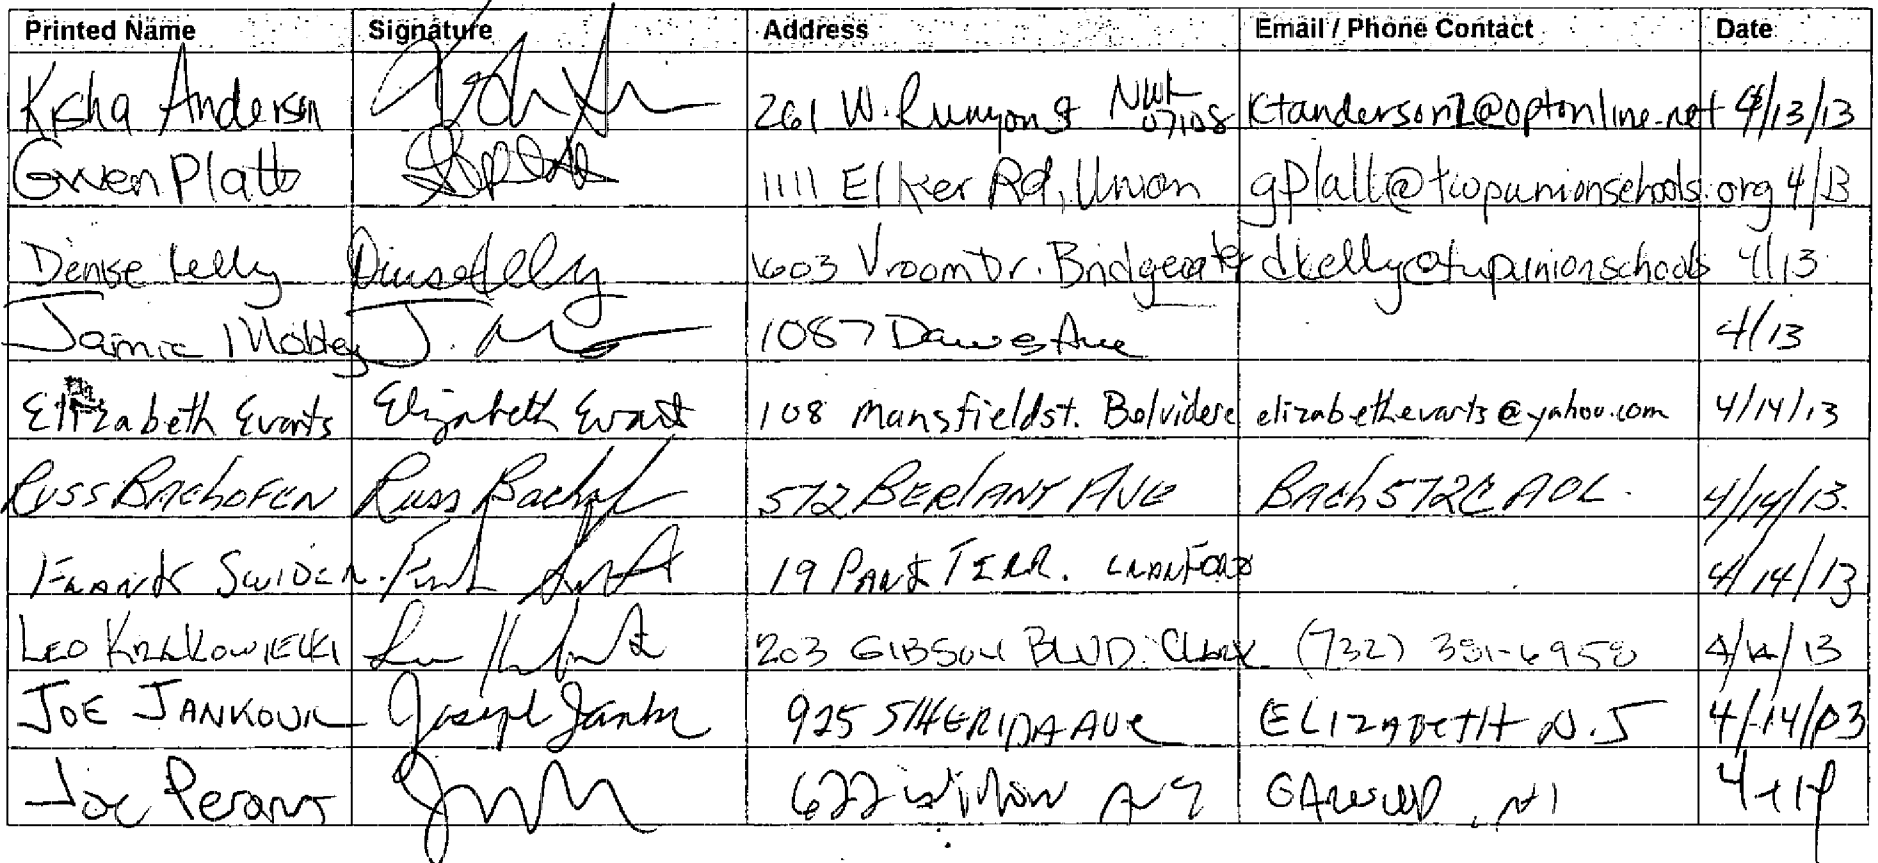 Printed Name Signature Address Email / Phone Contact Date
Kisha Anderson 261 W. Runyon St Nwk 07108 Ktanderson1@optonline.net 4/13/13
Gwen Platt 1111 Elker Rd, Union gplatt@twpunionschools.org 4/13
Denise Kelly Denise Kelly 603 Vroom Dr. Bridgewater dkelly@twpunionschools 4/13
Jamie Mobley J. 1087 Dawes Ave 4/13
Elizabeth Evarts Elizabeth Evarts 108 Mansfield st. Belvidere elizabethevarts@yahoo.com 4/14/13
RUSS BACHOFEN Russ 572 BERIANT AVE BACH572@AOL. 4/14/13.
FRANK SWIDER. Frank 19 PARK TERR. CRANFORD 4/14/13
LEO KRAKOWIECKI 203 GIBSON BLVD. Clark (732) 381-6958 4/14/13
JOE JANKOVIC Joseph 925 SHERIDA AVE ELIZABETH N.J 4/14/03
Joe 622 Willow AVE GARWOOD NJ 4-14